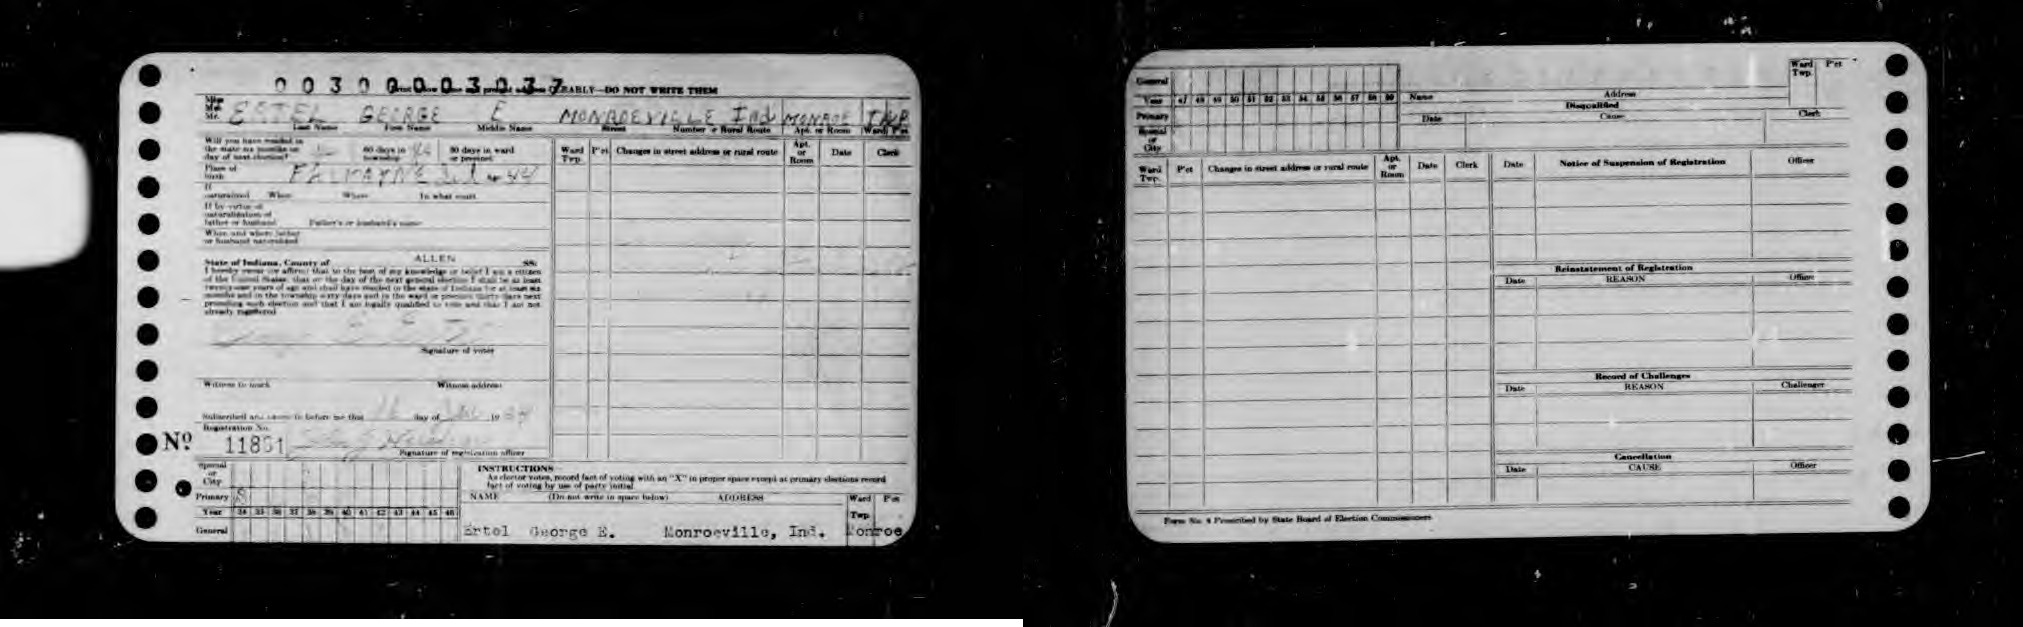 0 0 3 0 0 0 0 3 0 3 7 ABLY—DO NOT WRITE THEM
Miss
Mrs.
Mr. ERTEL GEORGE E MONROEVILLE Ind MONROE TWP
Last Name First Name Middle Name Street Number or Rural Route Apt. or Room Ward P'ct
Will you have resided in
the state six months on
day of next election? 60 days in township 30 days in ward or precinct
Place of
birth
If
naturalized When Where In what court
If by virtue of
naturalization of
father or husband Father's or husband's name
When and where father
or husband naturalized
State of Indiana, County of ALLEN SS:
I hereby swear (or affirm) that to the best of my knowledge or belief I am a citizen
of the United States, that on the day of the next general election I shall be at least
twenty-one years of age and shall have resided in the state of Indiana for at least six
months and in the township sixty days and in the ward or precinct thirty days next
preceding such election and that I am legally qualified to vote and that I am not
already registered
Signature of voter
Witness to mark Witness address
Subscribed and sworn to before me this day of 19
Registration No.
No 11861
Signature of registration officer
Ward
Twp. P'ct Changes in street address or rural route Apt.
or
Room Date Clerk
Special
or
City
Primary
Year 34 35 36 37 38 39 40 41 42 43 44 45 46
General
INSTRUCTIONS
As elector votes, record fact of voting with an "X" in proper space except at primary elections record
fact of voting by use of party initial
NAME (Do not write in space below) ADDRESS Ward P'ct
Twp.
Ertel George E. Monroeville, Ind. Monroe
General
Year 47 48 49 50 51 52 53 54 55 56 57 58 59
Primary
Special
or
City
Name Address
Ward
Twp. P'ct
Disqualified
Date Cause Clerk
Ward
Twp. P'ct Changes in street address or rural route Apt.
or
Room Date Clerk
Date Notice of Suspension of Registration Officer
Reinstatement of Registration
Date REASON Officer
Record of Challenges
Date REASON Challenger
Cancellation
Date CAUSE Officer
Form No. 4 Prescribed by State Board of Election Commissioners